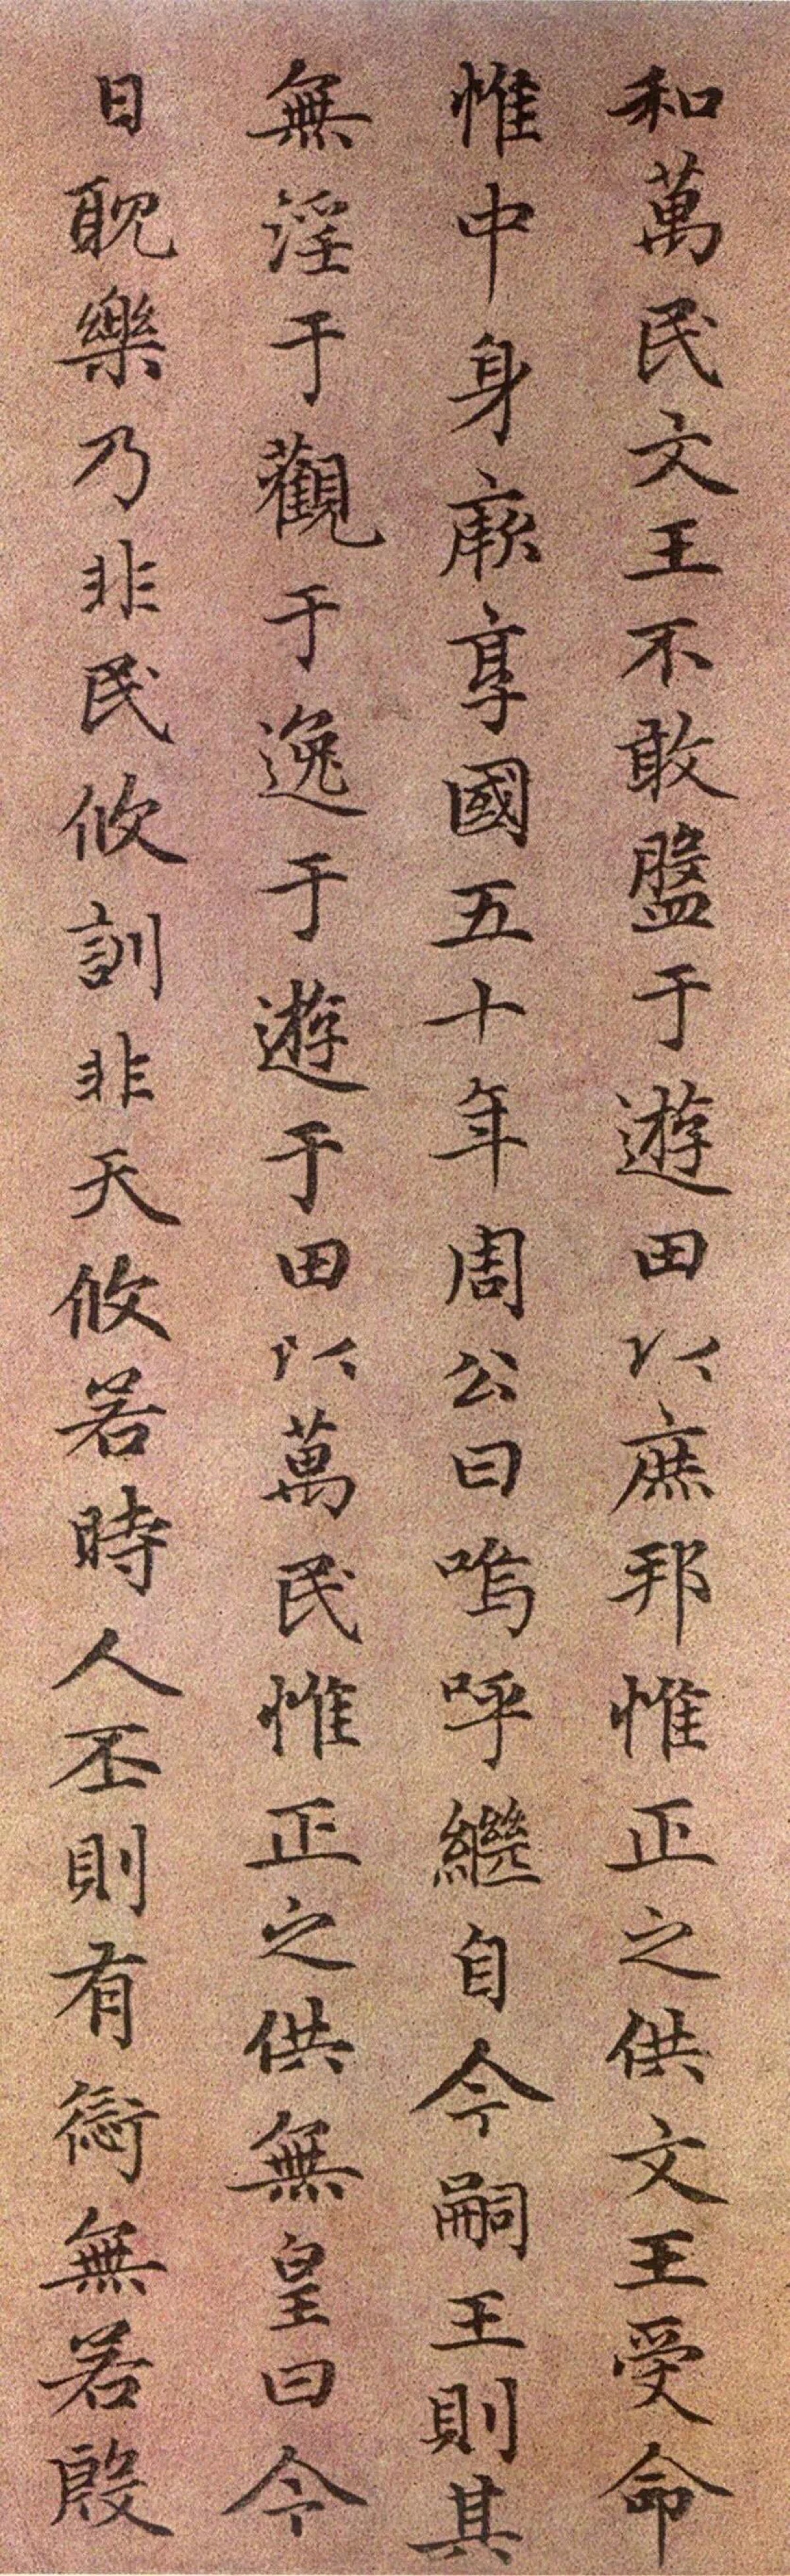 和萬民文王不敢盤于遊田以庶邦惟正之供文王受命
惟中身厥享國五十年周公曰嗚呼繼自今嗣王則其
無淫于觀于逸于遊于田以萬民惟正之供無皇曰今
日耽樂乃非民攸訓非天攸若時人丕則有愆無若殷